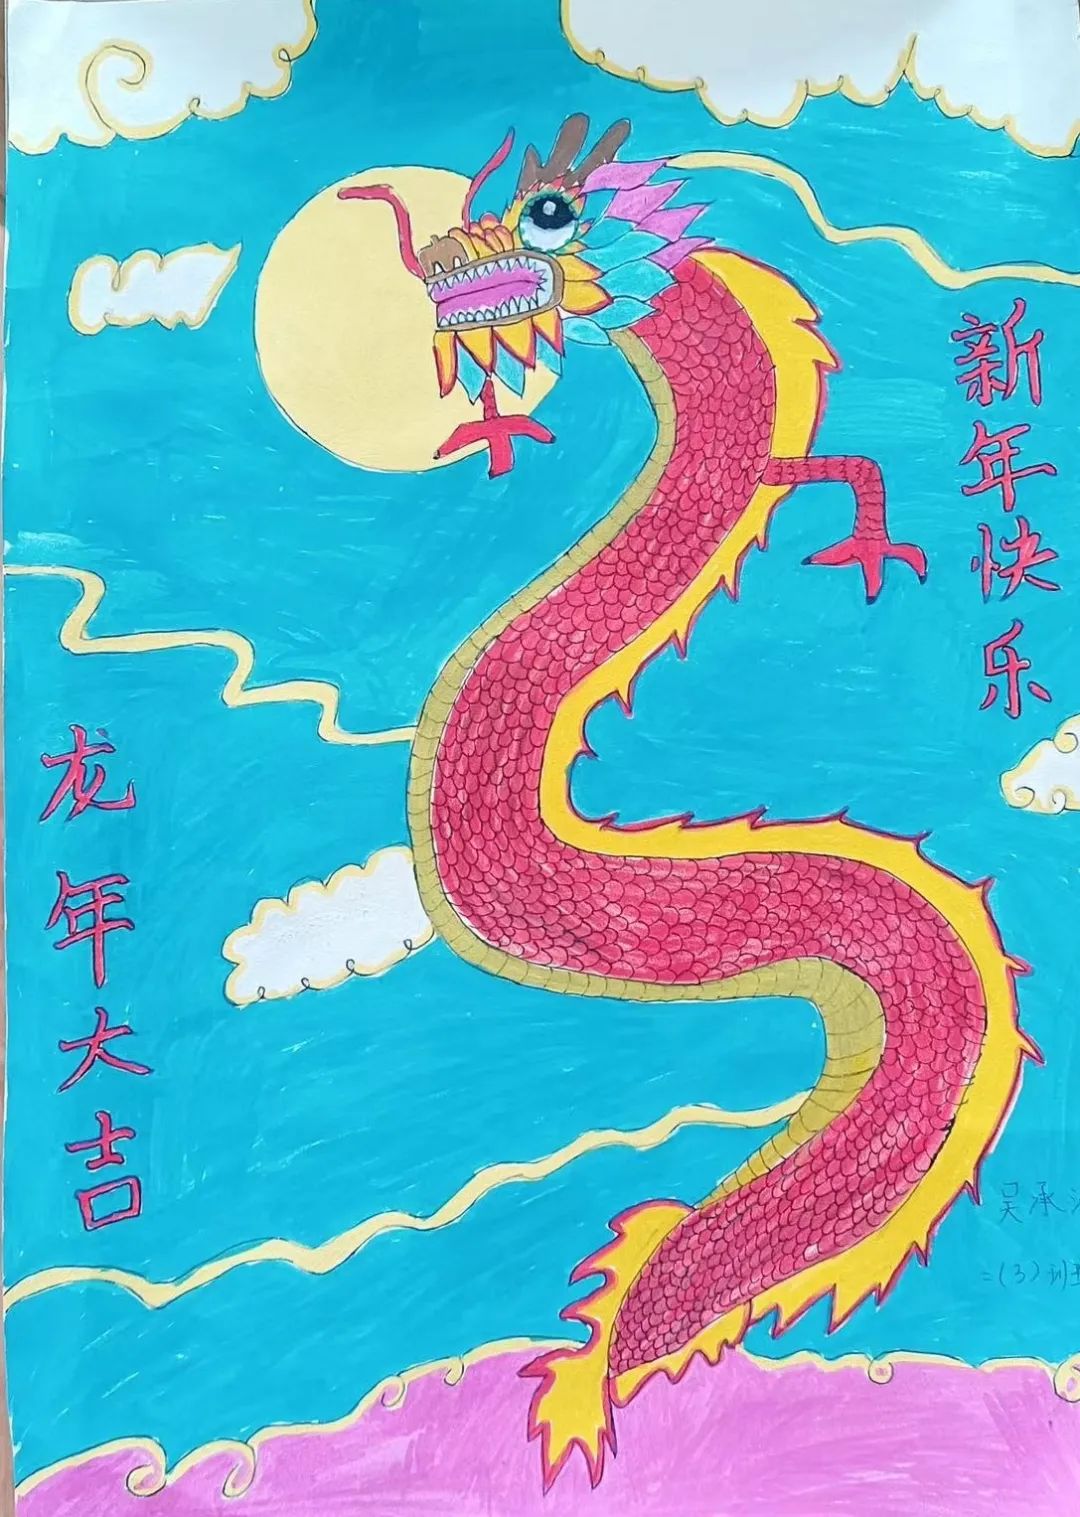 新年快乐
龙年大吉
吴承
二(3)班